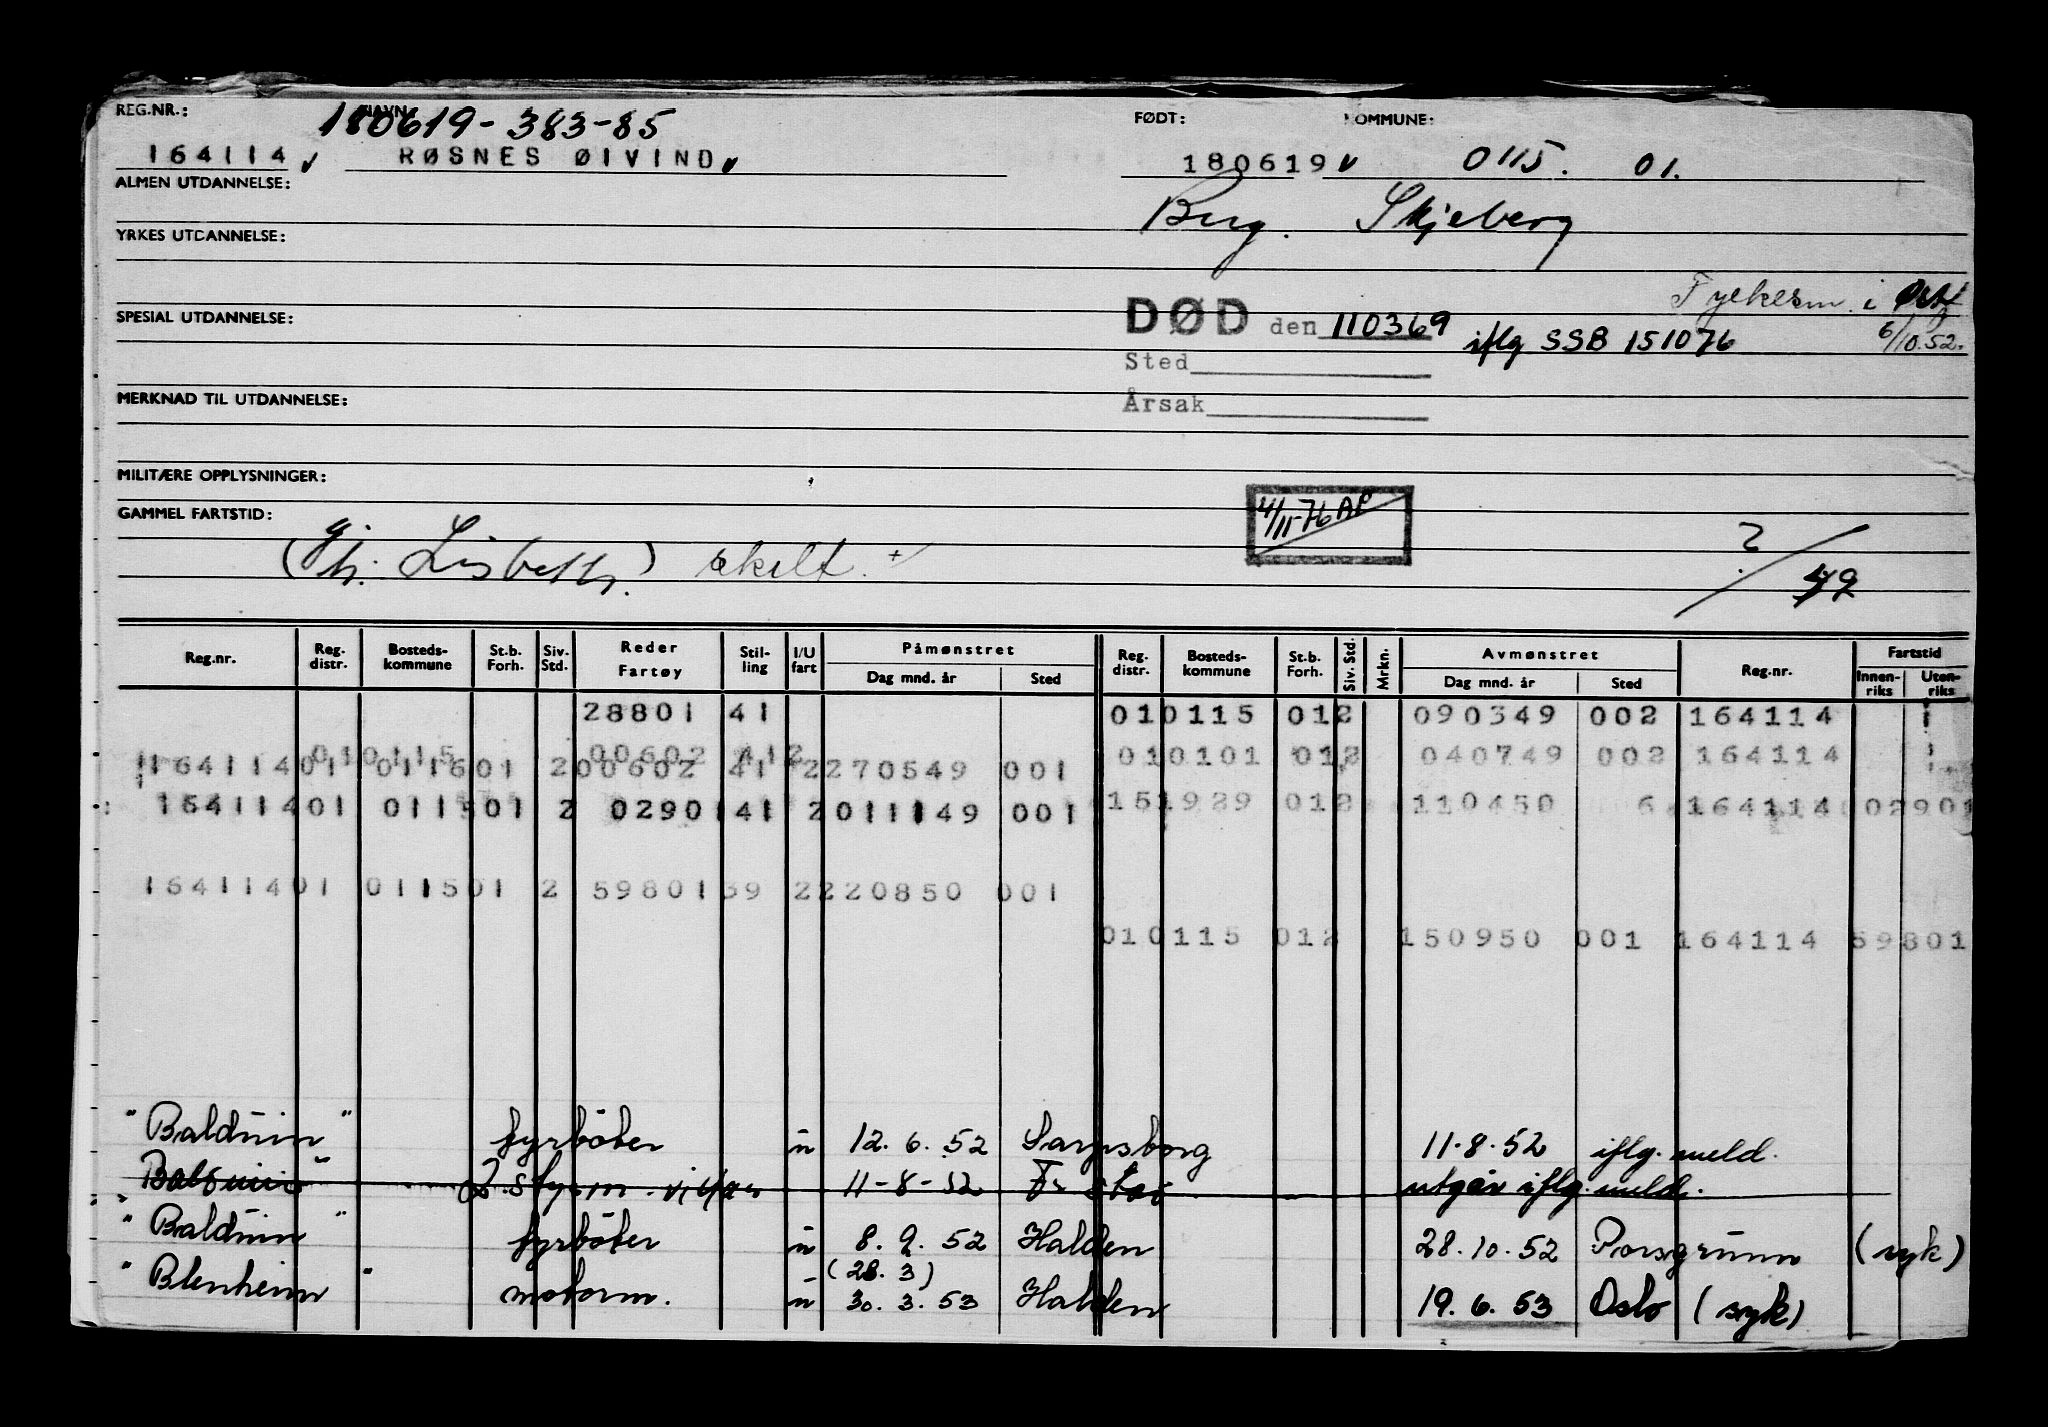 REG.NR.: NAVN: FØDT: KOMMUNE:
180619-383-85
164114 RØSNES ØIVIND 180619 0115. 01.
ALMEN UTDANNELSE:
Berg. Skjeberg
YRKES UTDANNELSE:
Fylkesm. i Østf
6/10.52.
SPESIAL UTDANNELSE:
DØD den 110369 iflg SSB 151076
Sted
MERKNAD TIL UTDANNELSE:
Årsak
MILITÆRE OPPLYSNINGER:
4/11-76 AP
GAMMEL FARTSTID:
(gh. Lisbeth.) skilt. + ?/49
Reg.nr. Reg. distr. Bosteds-kommune St.b. Forh. Siv. Std. Reder Fartøy Stil-ling I/U fart Påmønstret Dag mnd. år Sted Reg. distr. Bosteds-kommune St.b. Forh. Siv. Std. Mrkn. Avmønstret Dag mnd. år Sted Reg.nr. Fartstid Innen-riks Uten-riks
28801 41 010115 012 090349 002 164114
010115 00602 412 010101 012 040749 002 164114
16411401 011601 2 00602 41 2270549 001
16411401 011501 2 02901 41 2011149 001 151929 012 110450 6 164114 02901
16411401 011501 2 59801 39 2220850 001
010115 012 150950 001 164114 59801
"Balduin" fyrbøter u 12.6.52 Sarpsborg 11.8.52 iflg. meld.
"Balduin" 2. styrm. 11-8-52 Fr.stad utgår iflg. meld.
"Balduin" fyrbøter u 8.9.52 Halden 28.10.52 Porsgrunn (syk)
(28.3)
"Blenheim" motorm. u 30.3.53 Halden 19.6.53 Oslo (syk)